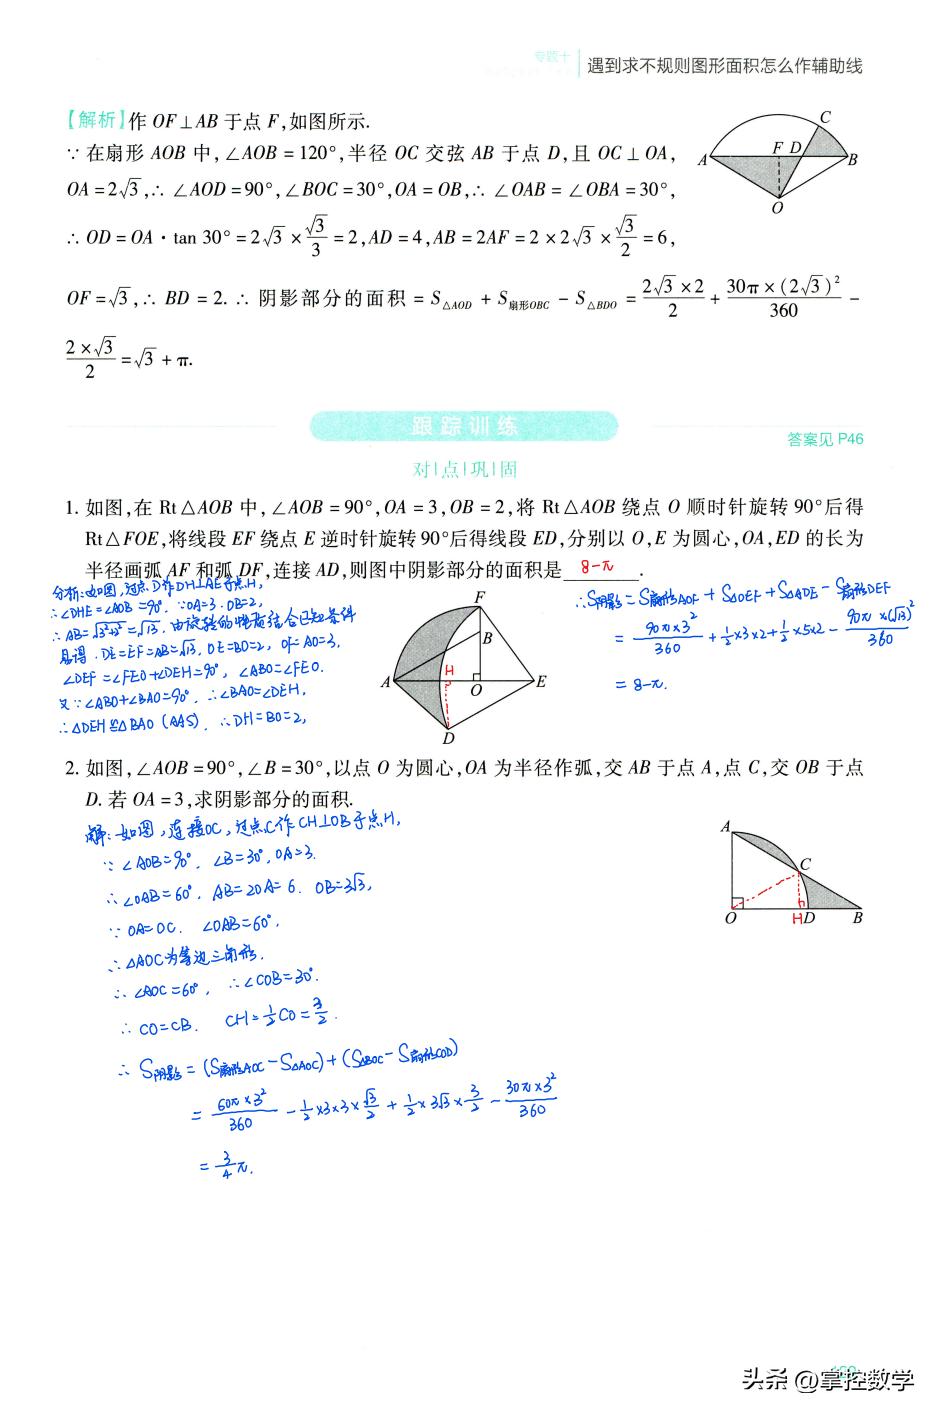 专题十
遇到求不规则图形面积怎么作辅助线
【解析】作 OF⊥AB 于点 F,如图所示.
∵ 在扇形 AOB 中,∠AOB = 120°,半径 OC 交弦 AB 于点 D,且 OC⊥OA,
OA = 2√3,∴ ∠AOD = 90°,∠BOC = 30°,OA = OB,∴ ∠OAB = ∠OBA = 30°,
∴ OD = OA·tan 30° = 2√3 × √3/3 = 2,AD = 4,AB = 2AF = 2 × 2√3 × √3/2 = 6,
OF = √3,∴ BD = 2. ∴ 阴影部分的面积 = S△AOD + S扇形OBC − S△BDO = (2√3 × 2)/2 + (30π × (2√3)²)/360 −
(2 × √3)/2 = √3 + π.
A F D C B O
跟踪训练
答案见 P46
对点巩固
1. 如图,在 Rt△AOB 中,∠AOB = 90°,OA = 3,OB = 2,将 Rt△AOB 绕点 O 顺时针旋转 90°后得
Rt△FOE,将线段 EF 绕点 E 逆时针旋转 90°后得线段 ED,分别以 O,E 为圆心,OA,ED 的长为
半径画弧 AF 和弧 DF,连接 AD,则图中阴影部分的面积是 8-π .
分析:如图,过点D作DH⊥AE于点H,
∴∠DHE=∠AOB=90°. ∵OA=3.OB=2,
∴AB=√3²+2²=√13.由旋转的性质结合已知条件
易得.DE=EF=AB=√13,OE=BO=2,OF=AO=3,
∠DEF=∠FEO+∠DEH=90°,∠ABO=∠FEO.
又∵∠ABO+∠BAO=90°.∴∠BAO=∠DEH,
∴△DEH≌△BAO(AAS).∴DH=BO=2,
∴S阴影=S扇形AOF+S△OEF+S△ADE-S扇形DEF
=(90π×3²)/360+1/2×3×2+1/2×5×2-(90π×(√13)²)/360
=8-π.
F B A H O E D
2. 如图,∠AOB = 90°,∠B = 30°,以点 O 为圆心,OA 为半径作弧,交 AB 于点 A,点 C,交 OB 于点
D. 若 OA = 3,求阴影部分的面积.
解:如图,连接OC,过点C作CH⊥OB于点H,
∵∠AOB=90°.∠B=30°,OA=3.
∴∠OAB=60°.AB=2OA=6.OB=3√3,
∵OA=OC.∠OAB=60°,
∴△AOC为等边三角形.
∴∠AOC=60°,∴∠COB=30°.
∴CO=CB. CH=1/2CO=3/2.
∴S阴影=(S扇形AOC-S△AOC)+(S△BOC-S扇形COD)
=(60π×3²)/360-1/2×3×3×√3/2+1/2×3√3×3/2-(30π×3²)/360
=3/4π.
A C O H D B
头条 @掌控数学